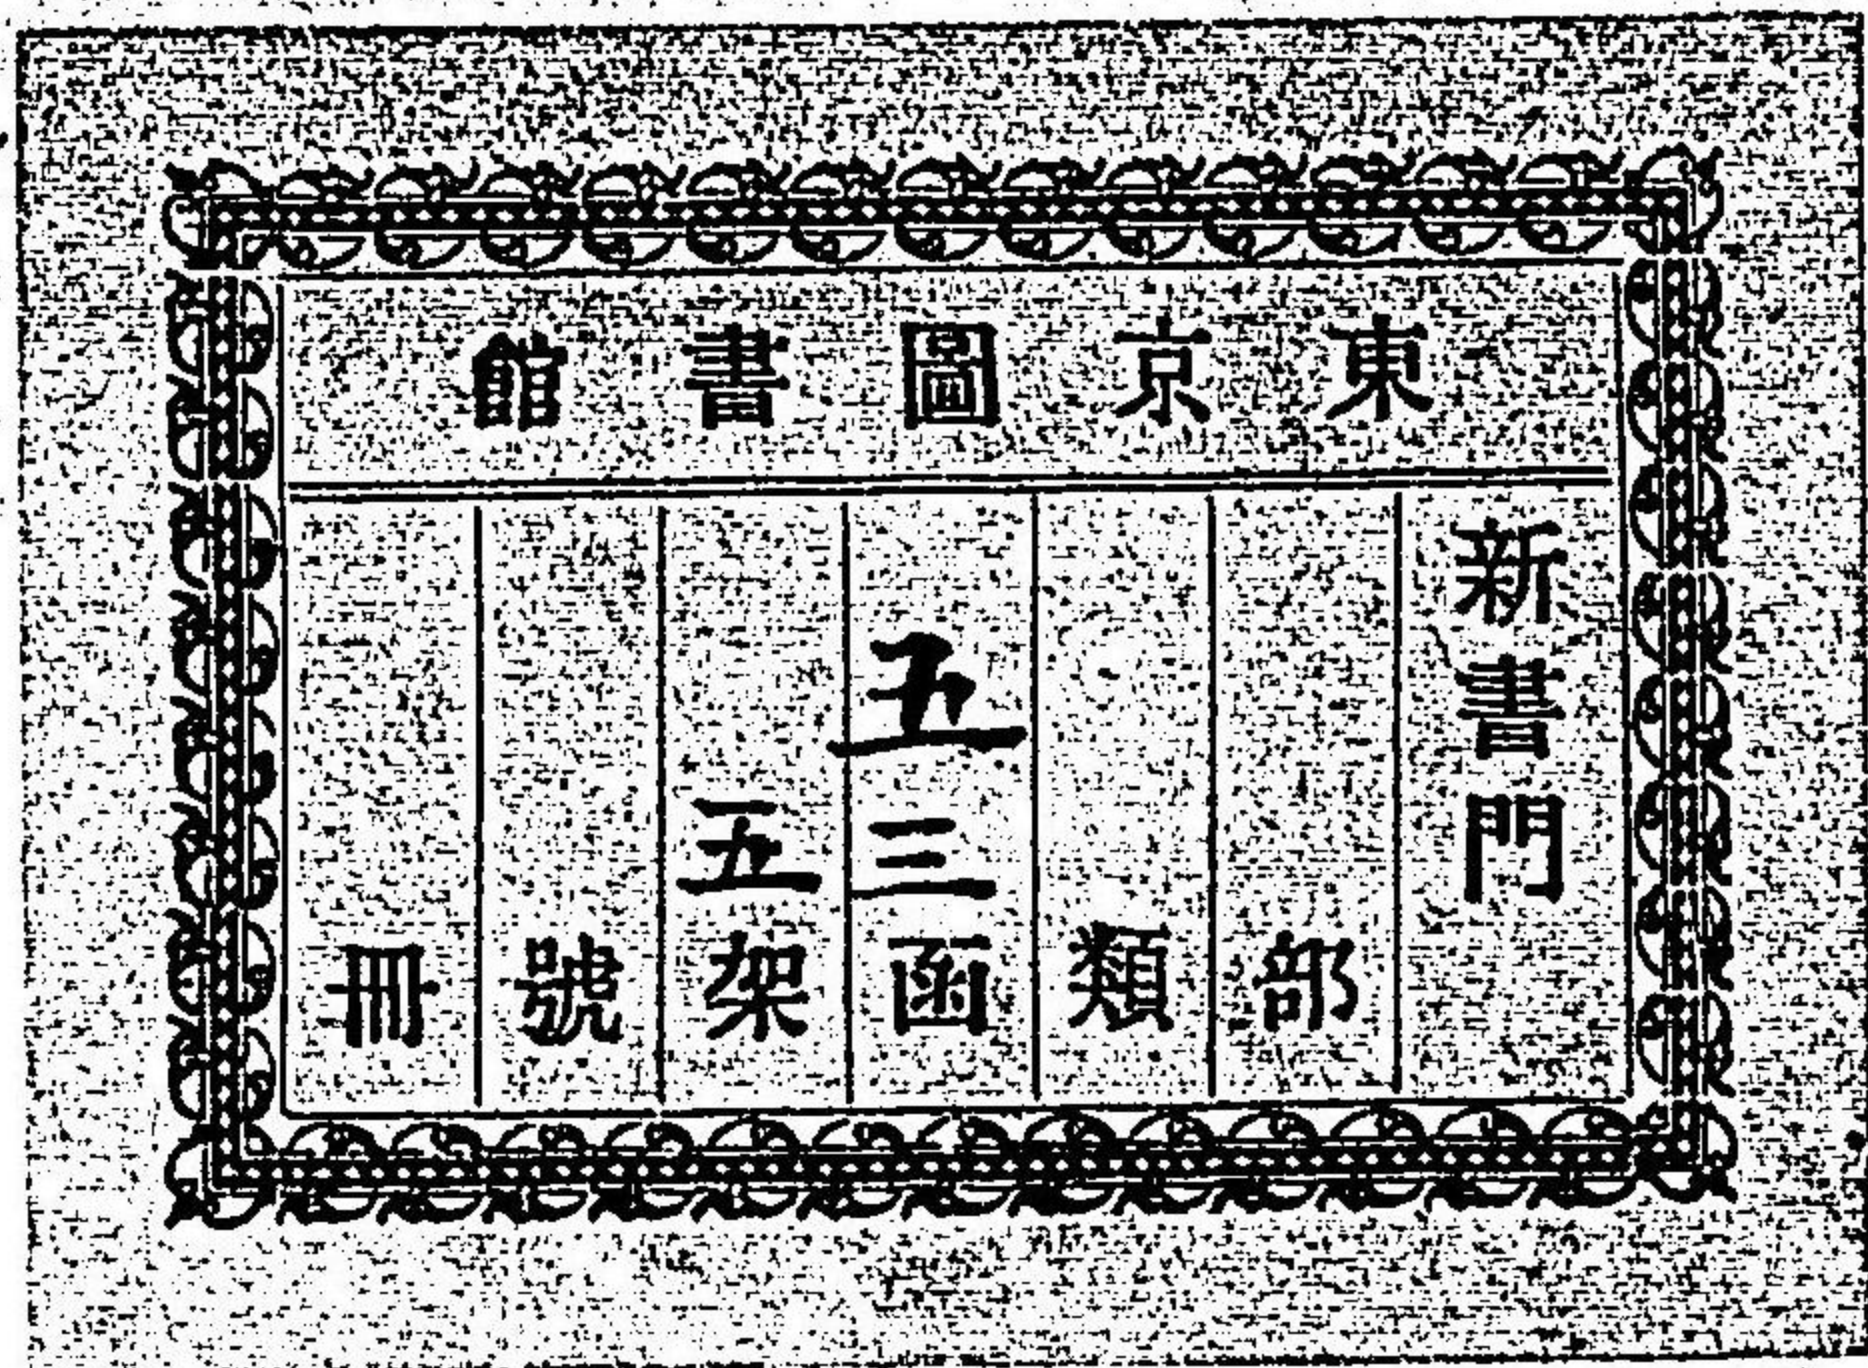 東京圖書館
新書門
部
類
五三函
五架
號
冊